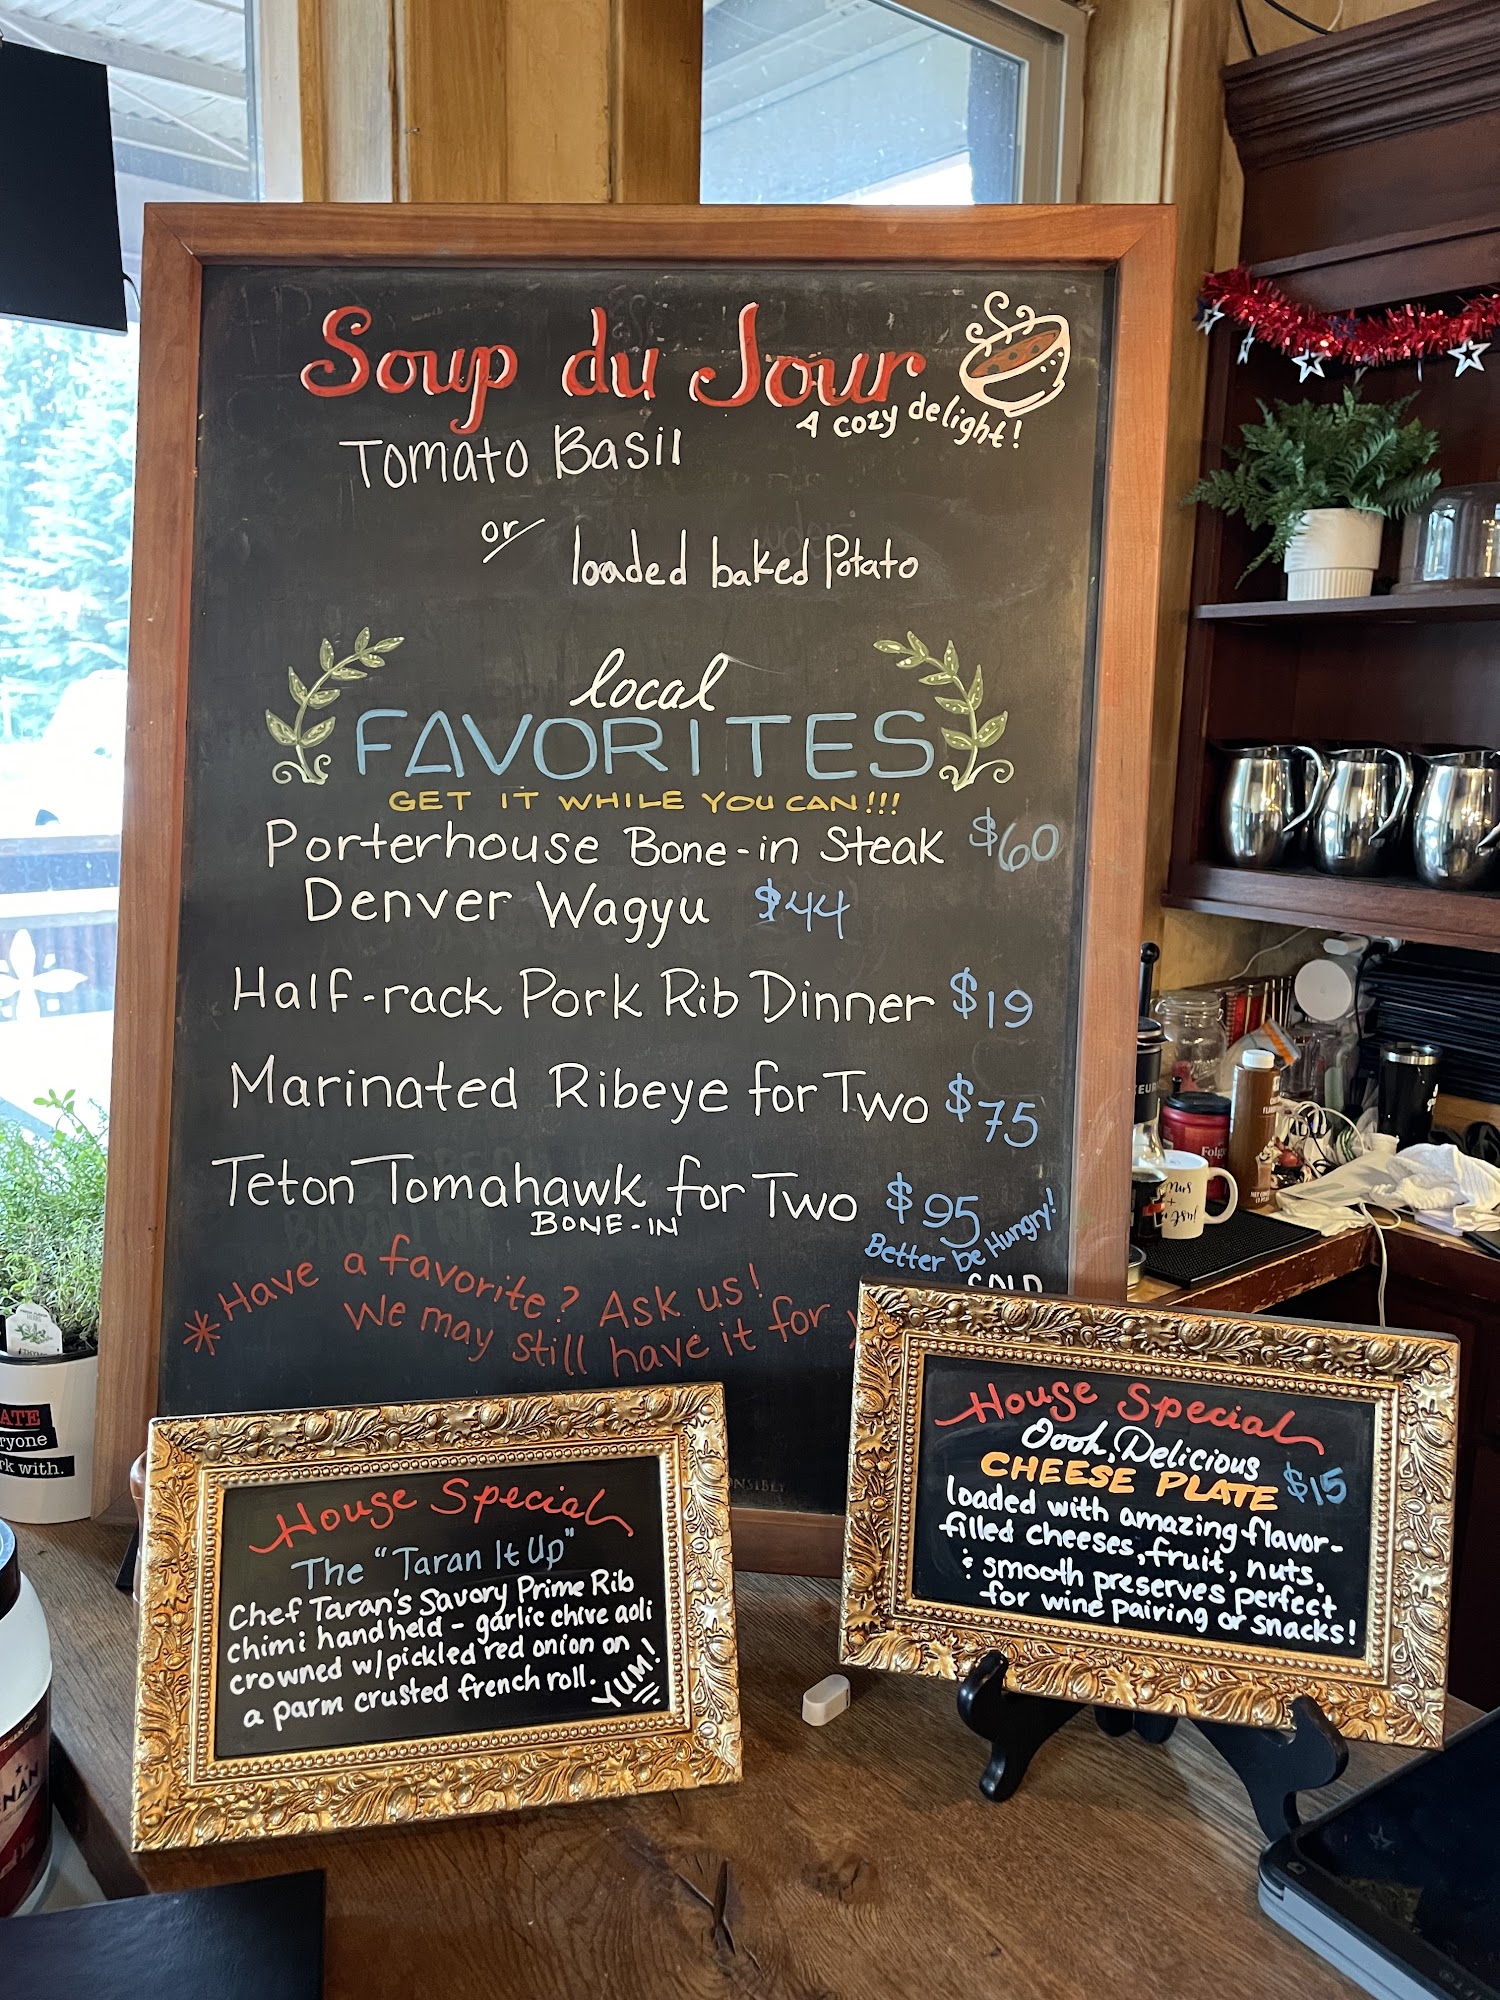 Soup du Jour
A cozy delight!
Tomato Basil
or
loaded baked Potato
local
FAVORITES
GET IT WHILE YOU CAN!!!
Porterhouse Bone-in Steak $60
Denver Wagyu $44
Half-rack Pork Rib Dinner $19
Marinated Ribeye for Two $75
Teton Tomahawk for Two $95
BONE-IN
Better be Hungry!
*Have a favorite? Ask us!
We may still have it for
House Special
The "Taran It Up"
Chef Taran's Savory Prime Rib
chimi handheld - garlic chive aoli
crowned w/pickled red onion on
a parm crusted french roll.
YUM!
House Special
Oooh, Delicious
CHEESE PLATE $15
loaded with amazing flavor-
filled cheeses, fruit, nuts,
& smooth preserves perfect
for wine pairing or snacks!